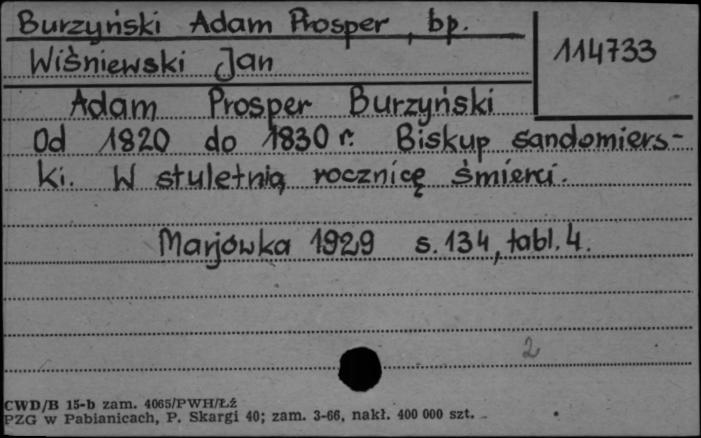 Burzyński Adam Prosper, bp.
114733
Wiśniewski Jan
Adam Prosper Burzyński
Od 1820 do 1830 r. Biskup sandomiers-
ki. W stuletnią rocznicę śmierci.
Marjówka 1929 s. 134, tabl. 4.
2
CWD/B 15-b zam. 4065/PWH/Łź
PZG w Pabianicach, P. Skargi 40; zam. 3-66, nakł. 400 000 szt.